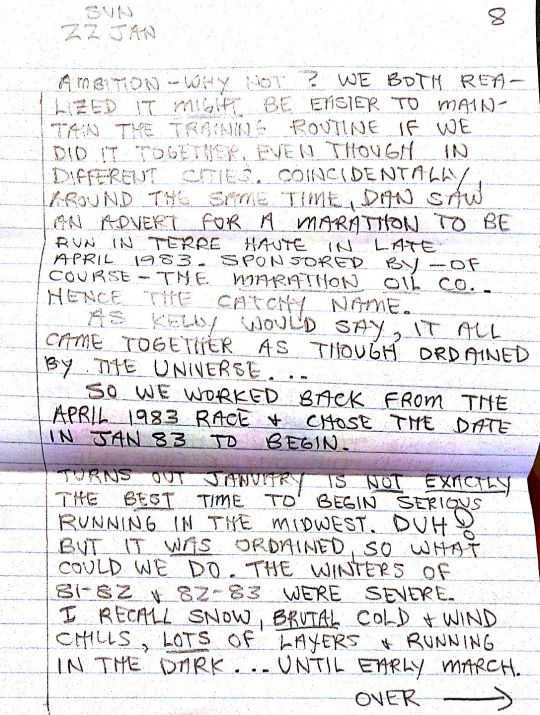 SUN
22 JAN
8
AMBITION - WHY NOT ? WE BOTH REA-
LIZED IT MIGHT BE EASIER TO MAIN-
TAIN THE TRAINING ROUTINE IF WE
DID IT TOGETHER, EVEN THOUGH IN
DIFFERENT CITIES. COINCIDENTALLY,
AROUND THE SAME TIME, DAN SAW
AN ADVERT FOR A MARATHON TO BE
RUN IN TERRE HAUTE IN LATE
APRIL 1983. SPONSORED BY - OF
COURSE - THE MARATHON OIL CO..
HENCE THE CATCHY NAME.
AS KELLY WOULD SAY, IT ALL
CAME TOGETHER AS THOUGH ORDAINED
BY THE UNIVERSE...
SO WE WORKED BACK FROM THE
APRIL 1983 RACE & CHOSE THE DATE
IN JAN 83 TO BEGIN.
TURNS OUT JANUARY IS NOT EXACTLY
THE BEST TIME TO BEGIN SERIOUS
RUNNING IN THE MIDWEST. DUH!
BUT IT WAS ORDAINED, SO WHAT
COULD WE DO. THE WINTERS OF
81-82 & 82-83 WERE SEVERE.
I RECALL SNOW, BRUTAL COLD & WIND
CHILLS, LOTS OF LAYERS & RUNNING
IN THE DARK... UNTIL EARLY MARCH.
OVER →